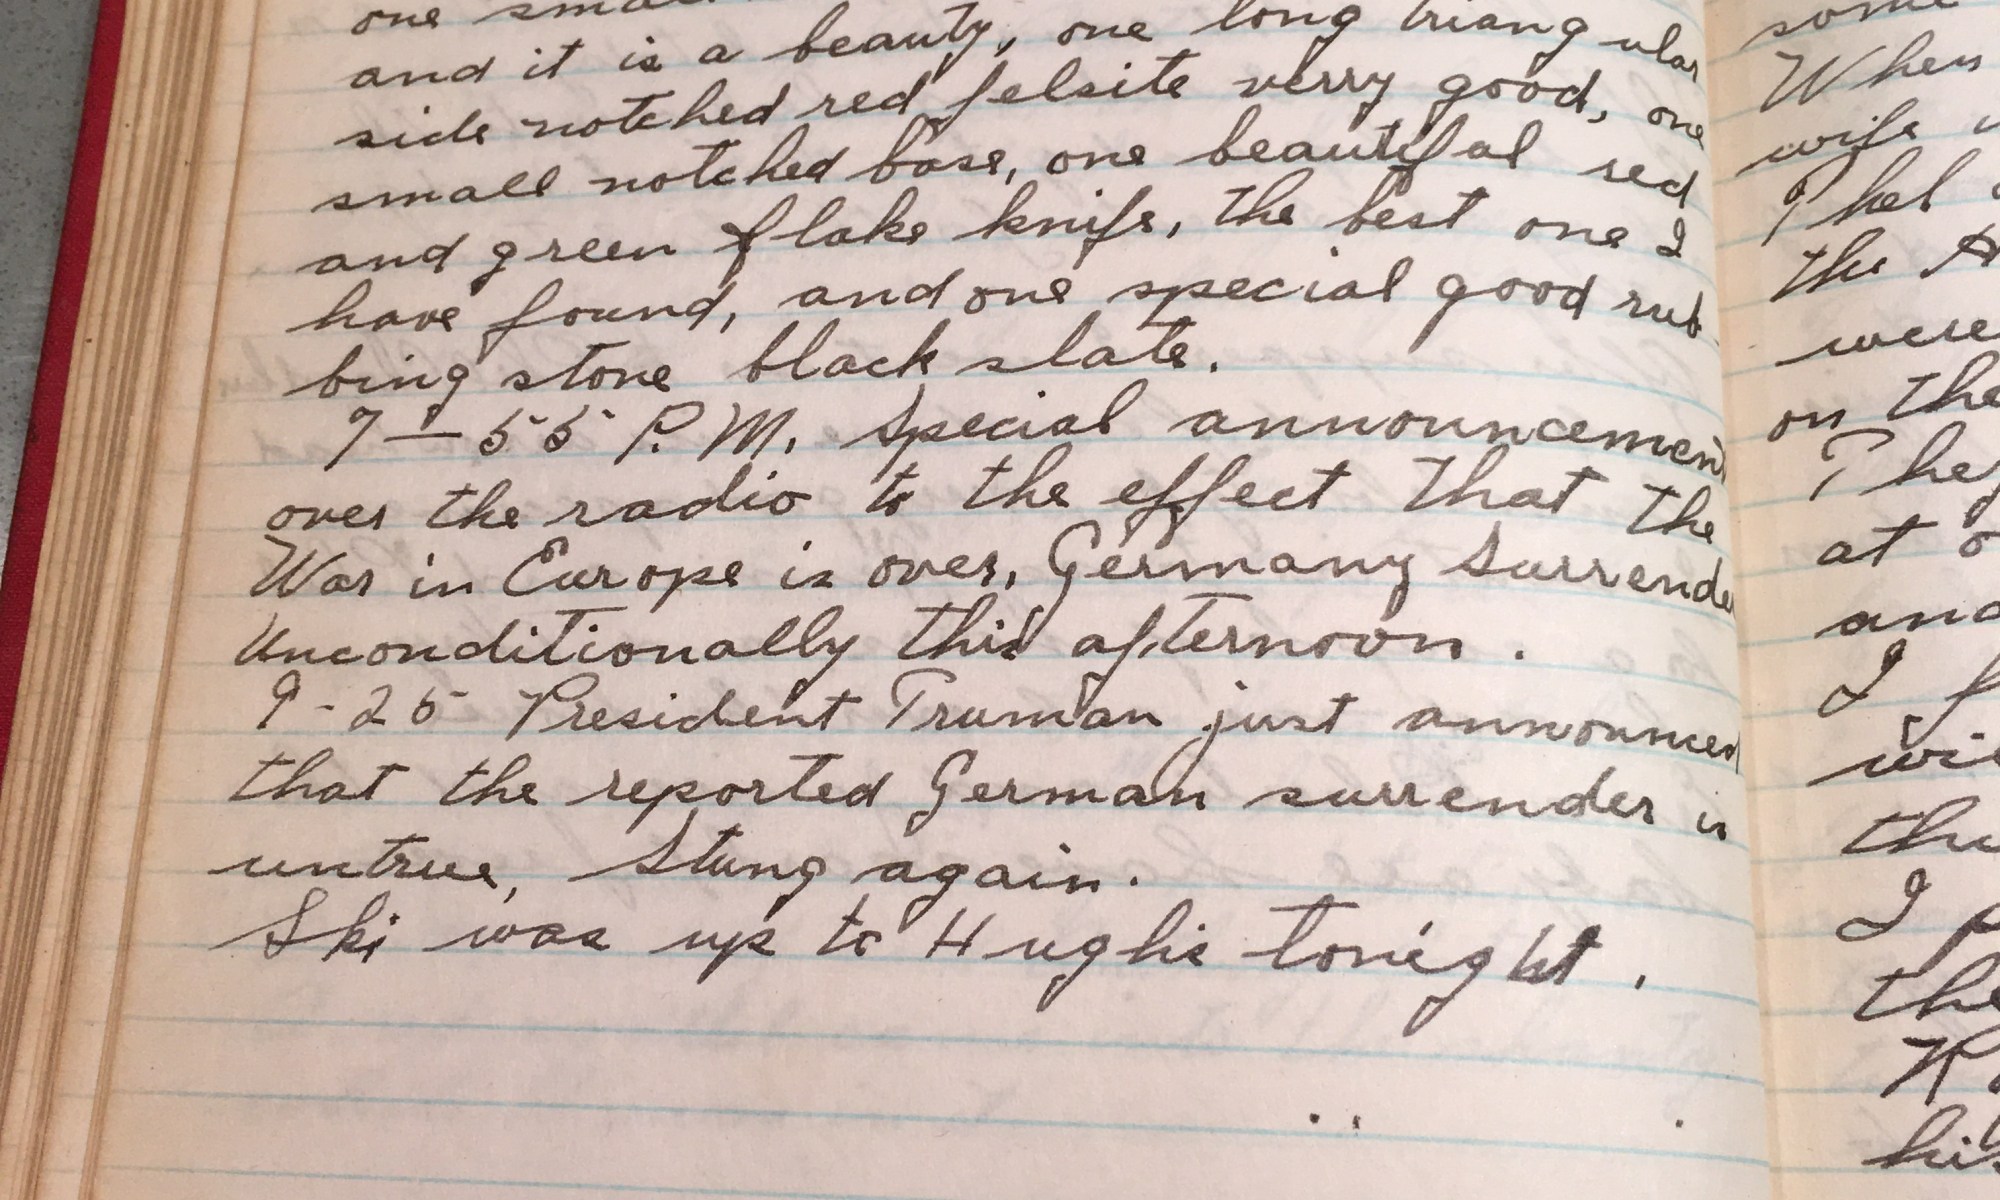 one small
and it is a beauty, one long triangular
side notched red felsite verry good, one
small notched base, one beautiful red
and green flake knife, the best one I
have found, and one special good rub-
bing stone black slate.
7-55 P.M. Special announcement
over the radio to the effect that the
War in Europe is over, Germany Surrender
Unconditionally this afternoon.
9-25 President Truman just announced
that the reported German surrender is
untrue, Stung again.
Ski was up to Hughs tonight.
some
When
wife
Phel
the
were
on the
They
at
and
I
the
I
the
his